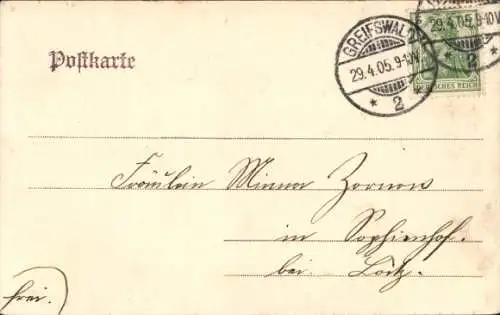 GREIFSWALD
29.4.05. 9-10V.
* 2 *
29.4.05. 9-10V.
* 2 *
DEUTSCHES REICH
Postkarte
Fräulein Minna Zornow
in Sophienhof.
bei Loitz.
frei.